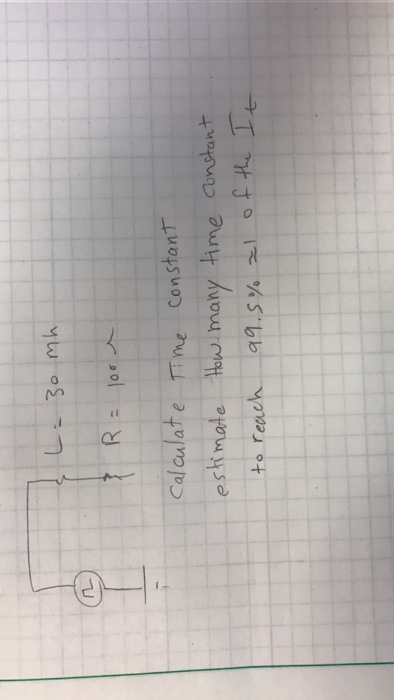 L = 30 mh
R = 100 Ω
Calculate Time constant
estimate How many time constant
to reach 99.5% ≈1 of the I t